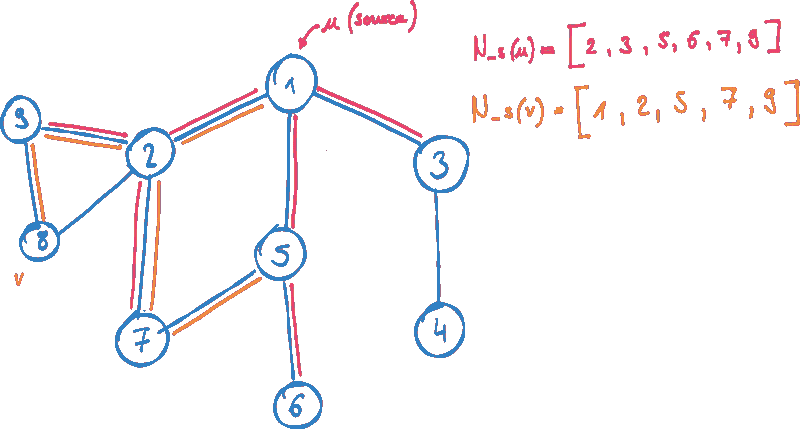 u (source)
N_s(u) = [2, 3, 5, 6, 7, 9]
N_s(v) = [1, 2, 5, 7, 9]
1
9
2
3
8
v
5
7
4
6